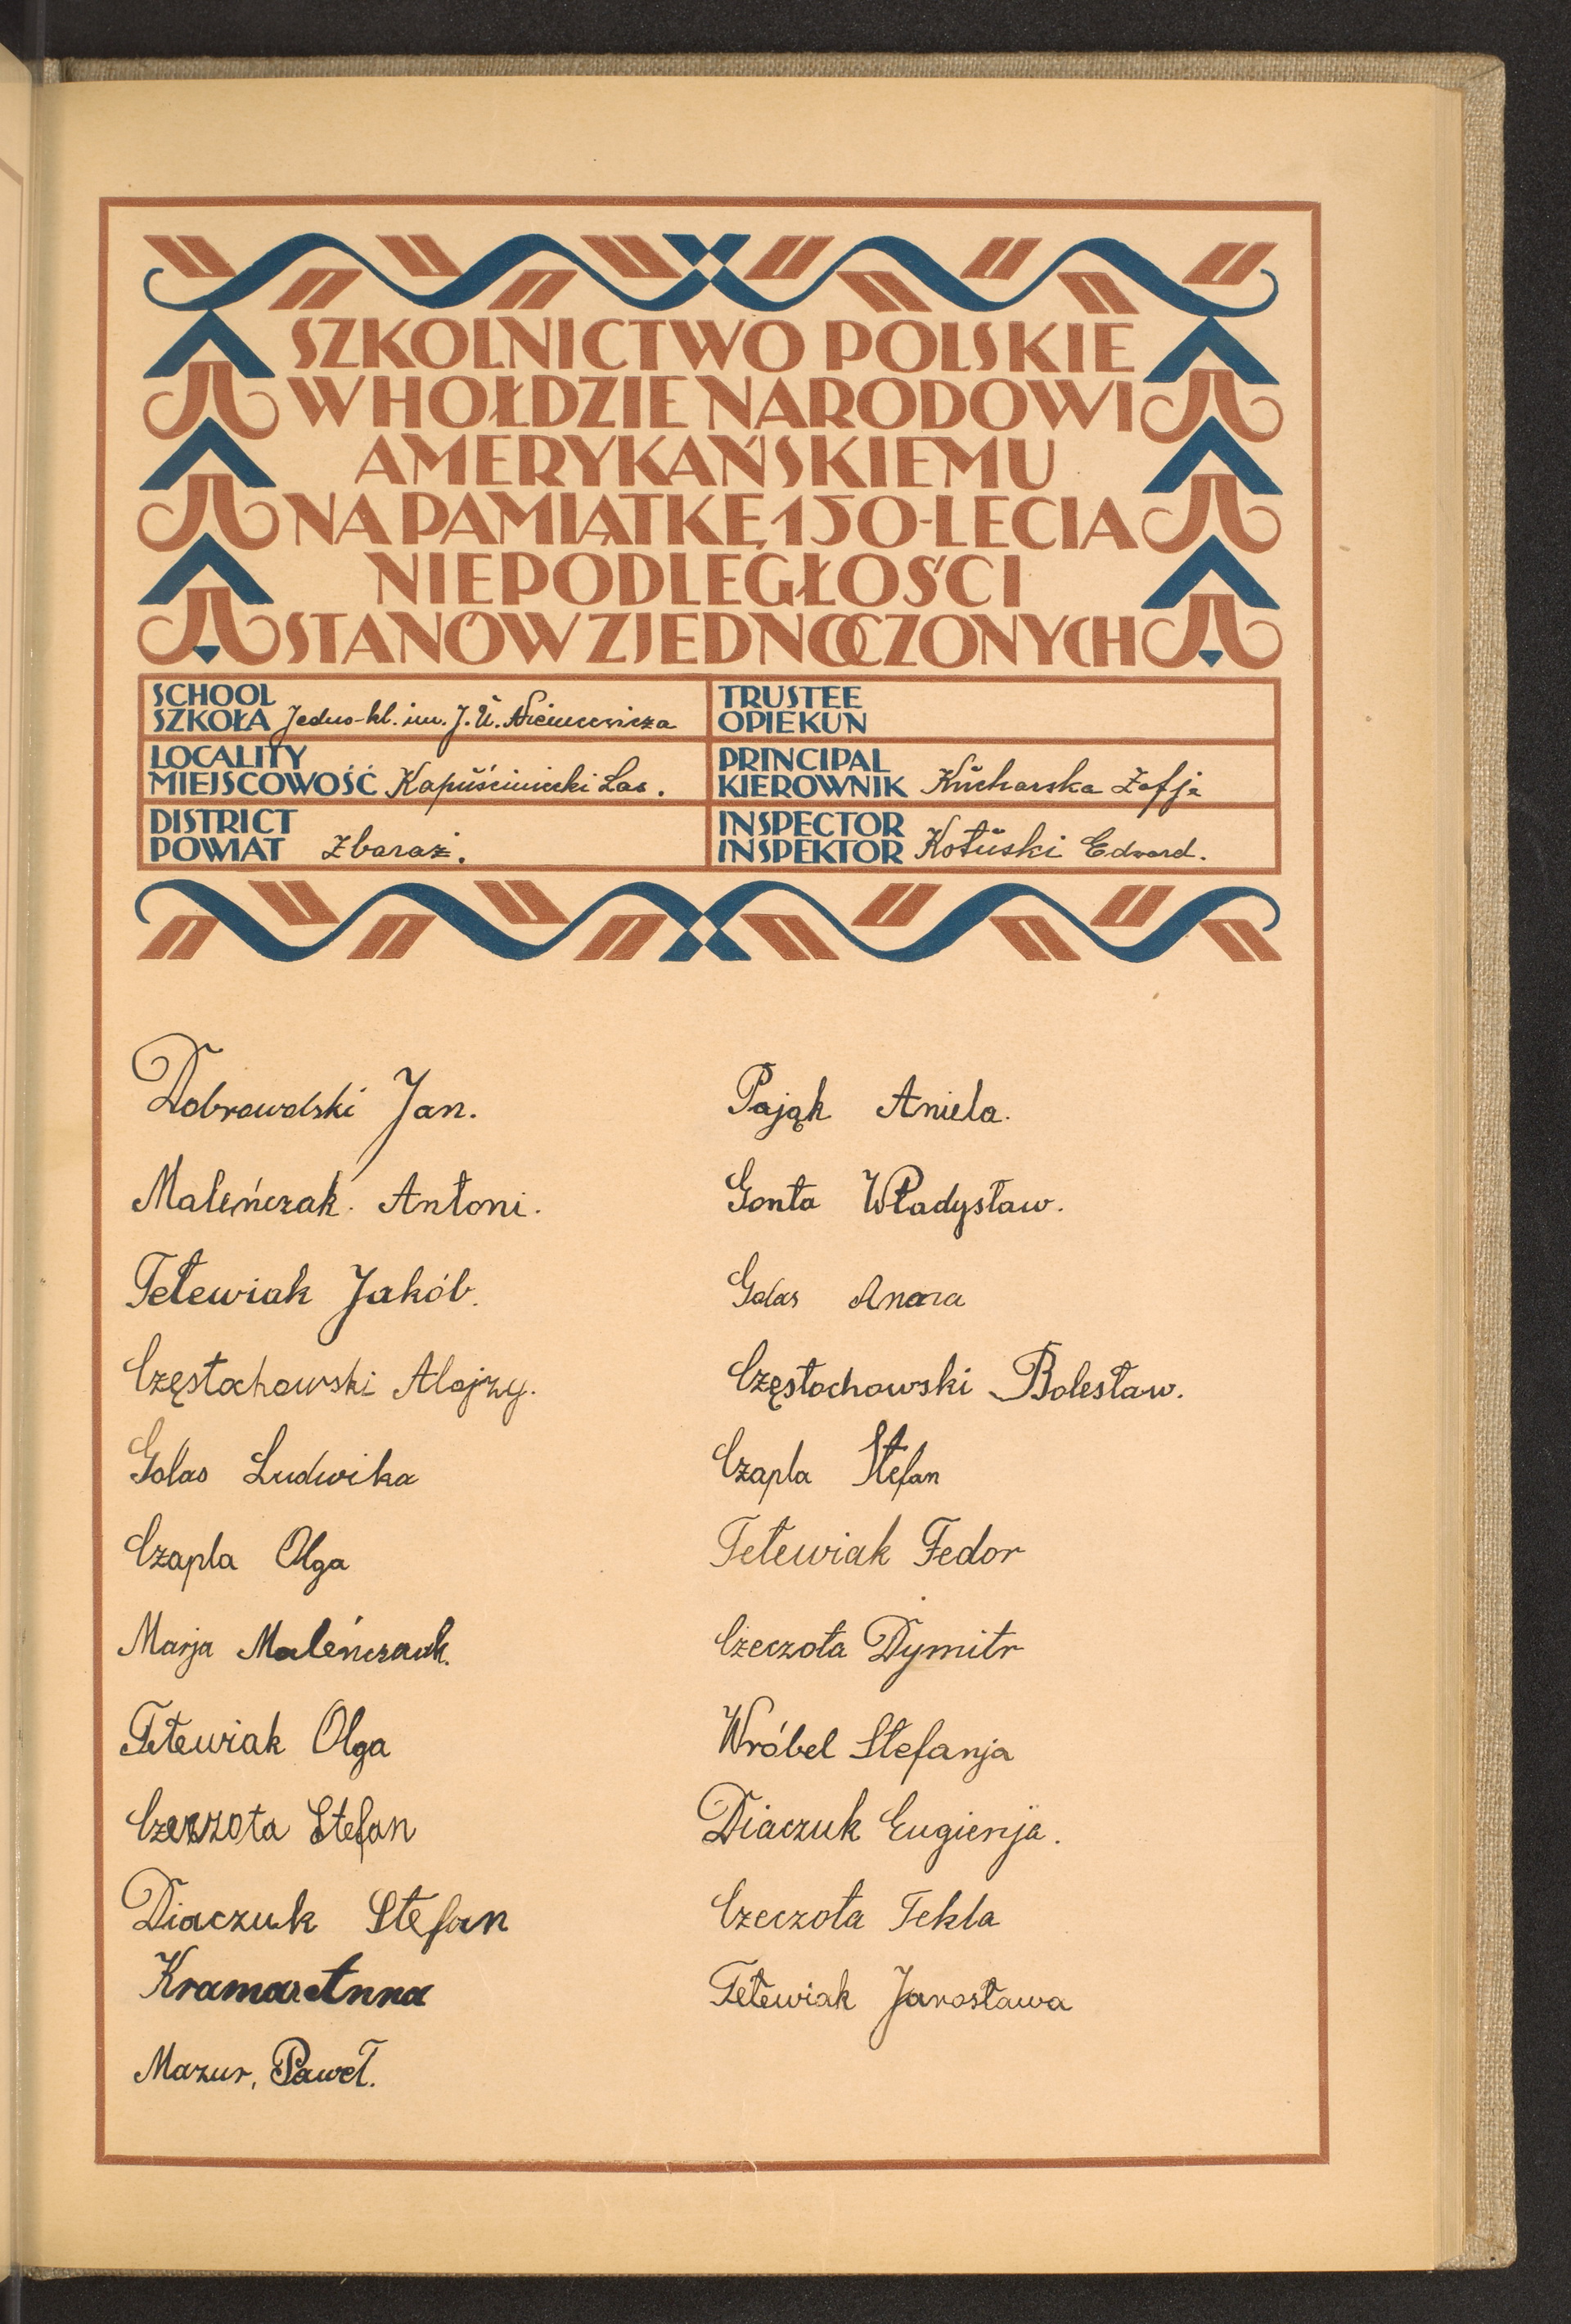 SZKOLNICTWO POLSKIE
W HOŁDZIE NARODOWI
AMERYKAŃSKIEMU
NA PAMIĄTKĘ 150-LECIA
NIEPODLEGŁOŚCI
STANÓW ZJEDNOCZONYCH
SCHOOL
SZKOŁA Jedno-kl. im. J. U. Niemcewicza
LOCALITY
MIEJSCOWOŚĆ Kapuściniecki Las.
DISTRICT
POWIAT Zbaraż.
TRUSTEE
OPIEKUN
PRINCIPAL
KIEROWNIK Kucharska Zofja
INSPECTOR
INSPEKTOR Kotuski Edward.
Dobrowolski Jan.
Maleńczak. Antoni.
Tetewiak Jakób.
Częstochowski Alojzy.
Golas Ludwika
Czapla Olga
Marja Maleńczuk.
Tetewiak Olga
Czeczota Stefan
Diaczuk Stefan
Kramar Anna
Mazur, Paweł.
Pająk Aniela.
Gonta Władysław.
Golas
Częstochowski Bolesław.
Czapla Stefan
Tetewiak Fedor
Czeczota Dymitr
Wróbel Stefanja
Diaczuk Eugienja.
Czeczota Tekla
Tetewiak Jarosława